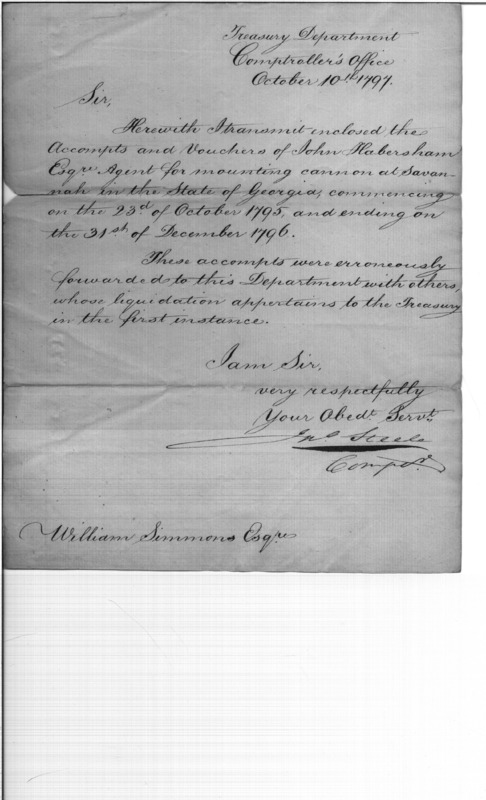 Treasury Department
Comptroller's Office
October 10th 1797.
Sir,
Herewith I transmit inclosed the
Accompts and Vouchers of John Habersham
Esqre Agent for mounting cannon at Savan-
nah in the State of Georgia; commencing
on the 23d of October 1795, and ending on
the 31st of December 1796.
These accompts were erroneously
forwarded to this Department with others,
whose liquidation appertains to the Treasury
in the first instance.
I am Sir,
very respectfully
Your Obedt. Servt.
Jno Steele
Compr.
William Simmons Esqre